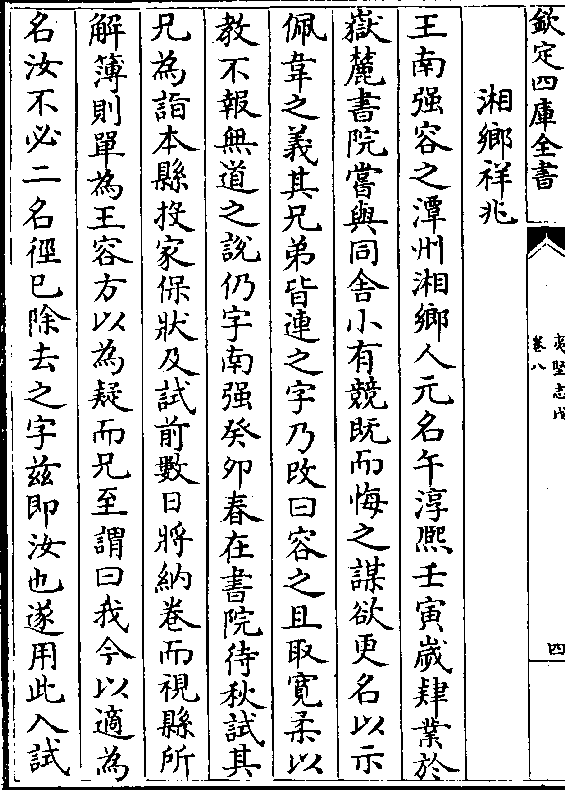 欽定四庫全書
夷堅志戊
卷八
四
湘鄉祥兆
王南强容之潭州湘鄉人元名午淳熈壬寅歲肄業於
嶽麓書院嘗與同舎小有競既而悔之謀欲更名以示
佩韋之義其兄弟皆連之字乃改曰容之且取寛柔以
教不報無道之説仍字南强癸夘春在書院待秋試其
兄為詣本縣投家保狀及試前數日將納卷而視縣所
解簿則單為王容方以為疑而兄至謂曰我今以適為
名汝不必二名徑已除去之字兹即汝也遂用此入試